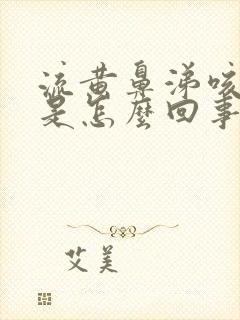 流黄鼻涕咳
是怎麼回事
艾美